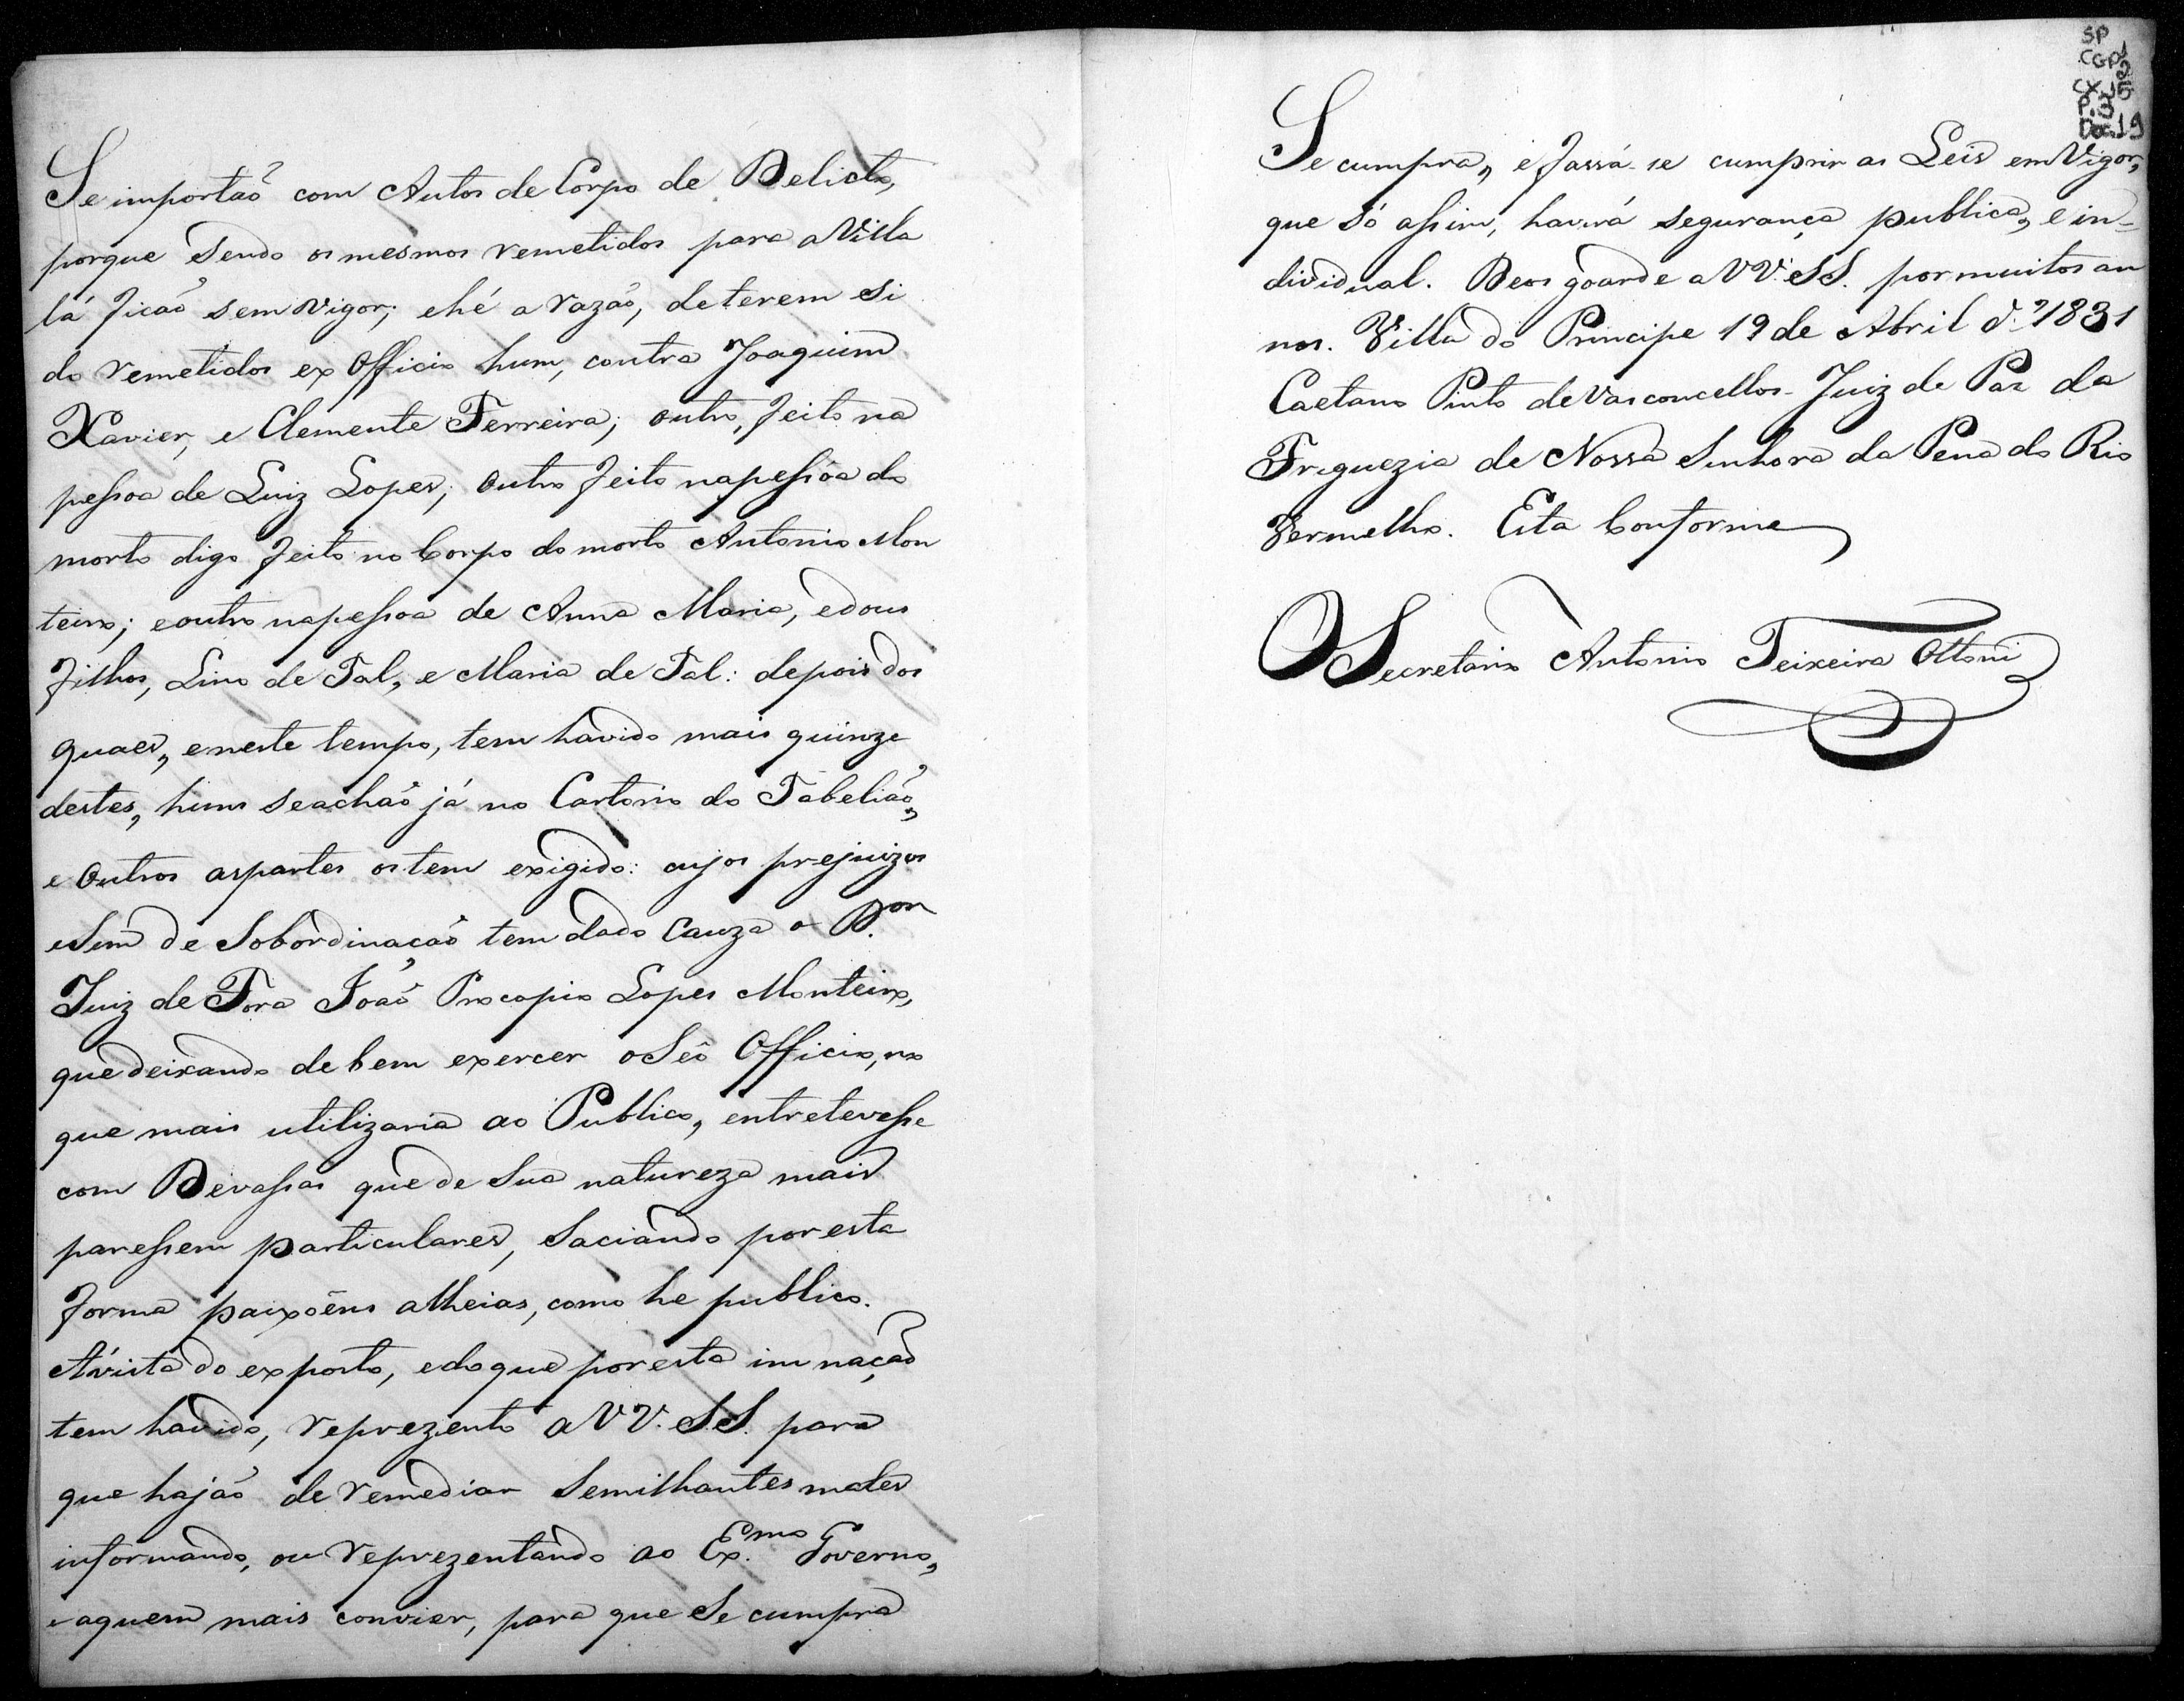 Se importaõ com Autos de Corpo de Delicto,
porque sendo os mesmos remetidos para a Villa
lá ficaõ sem vigor; ehé a razaõ, de terem si
do remetidos ex Officio hum, contra Joaquim
Xavier, e Clemente Ferreira; outro, feito na
peſsoa de Luiz Lopes; outro feito napeſsôa do
morto digo feito no Corpo do morto Antonio Mon
teiro; eoutro napeſsoa de Anna Maria, edous
filhos, Lino de Tal, e Maria de Tal: depois dos
quaes, eneste tempo, tem havido mais quinze
destes, huns seachaõ já no Cartorio do Tabeliaõ,
e outros aspartes os tem exigido: cujos prejuizos
eSem de Sobordinaçaõ tem dado Cauza o D.or
Juiz de Fora Joaõ Procopio Lopes Monteiro,
que deixando de bem exercer oSeô Officio, no
que mais utilizaria ao Publico, entreteveſse
com Devaſsas que de Sua natureza mais
pareſsem particulares, Saciando por esta
forma paixoẽns alheias, como he publico.
Avista do exposto, edoque por esta in naçaõ
tem havido, reprezento a VV. SS. para
que hajaõ de remediar Semilhantes males
informando, ou reprezentando ao Ex.mo Governo,
e aquem mais convier, para que Se cumpra
SP
CGP1
2
CX.15
P.3
Doc.19
Se cumpra, e fassá-se cumprir as Leis em Vigor,
que só aſsim, haverá segurança publica, e in-
dividual. Deos goarde a VV. SS. por muitos an
nos. Villa do Principe 19 de Abril d' 1831
Caetano Pinto de Vasconcellos - Juiz de Paz da
Freguezia de Nossa Senhora da Pena do Rio
Vermelho. Está Conforme
O Secretario Antonio Teixeira Ottoni